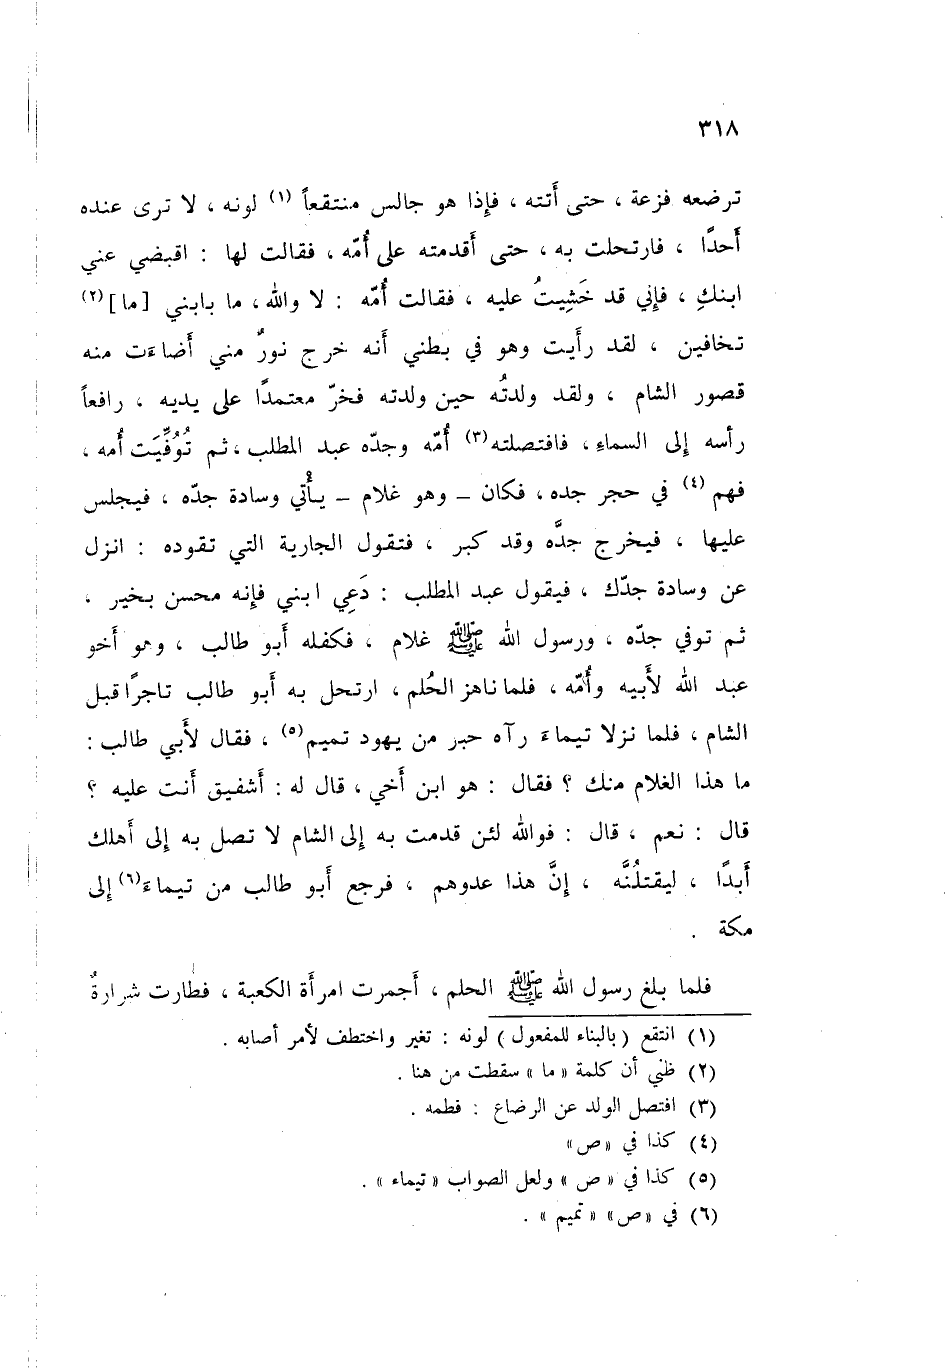 ٣١٨
ترضعه فزعة ، حتى أَتته ، فإذا هو جالس منتقعاً (١) لونه ، لا ترى عنده
أَحدًا ، فارتحلت به ، حتى أَقدمته على أُمّه ، فقالت لها : اقبضي عني
ابنكِ ، فإني قد خَشِيتُ عليه ، فقالت أُمّه : لا والله ، ما بابني [ما] (٢)
تخافين ، لقد رأَيت وهو في بطني أَنه خرج نورٌ مني أَضاءَت منه
قصور الشام ، ولقد ولدتُه حين ولدته فخرّ معتمدًا على يديه ، رافعاً
رأْسه إلى السماءِ ، فافتصلته (٣) أُمّه وجدّه عبد المطلب ، ثم تُوُفِّيَت أُمه ،
فهم (٤) في حجر جده ، فكان – وهو غلام – يأْتي وسادة جدّه ، فيجلس
عليها ، فيخرج جدَّه وقد كبر ، فتقول الجارية التي تقوده : انزل
عن وسادة جدّك ، فيقول عبد المطلب : دَعِي ابني فإنه محسن بخير ،
ثم توفي جدّه ، ورسول الله ﷺ غلام ، فكفله أَبو طالب ، وهو أَخو
عبد الله لأَبيه وأُمّه ، فلما ناهز الحُلم ، ارتحل به أَبو طالب تاجرًا قبل
الشام ، فلما نزلا تيماءَ رآه حبر من يهود تميم (٥) ، فقال لأَبي طالب :
ما هذا الغلام منك ؟ فقال : هو ابن أَخي ، قال له : أَشفيق أَنت عليه ؟
قال : نعم ، قال : فوالله لئن قدمت به إلى الشام لا تصل به إلى أَهلك
أَبدًا ، ليقتلُنَّه ، إنَّ هذا عدوهم ، فرجع أَبو طالب من تيماءَ (٦) إلى
مكة .
فلما بلغ رسول الله ﷺ الحلم ، أَجمرت امرأَة الكعبة ، فطارت شرارةٌ
(١) انتقع ( بالبناء للمفعول ) لونه : تغير واختطف لأمر أصابه .
(٢) ظني أن كلمة « ما » سقطت من هنا .
(٣) افتصل الولد عن الرضاع : فطمه .
(٤) كذا في « ص »
(٥) كذا في « ص » ولعل الصواب « تيماء » .
(٦) في « ص » « تميم » .